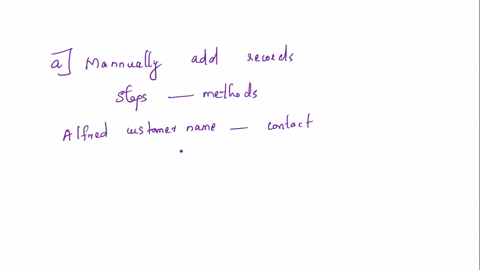 a] Mannually add records
steps — methods
Alfred customer name — contact